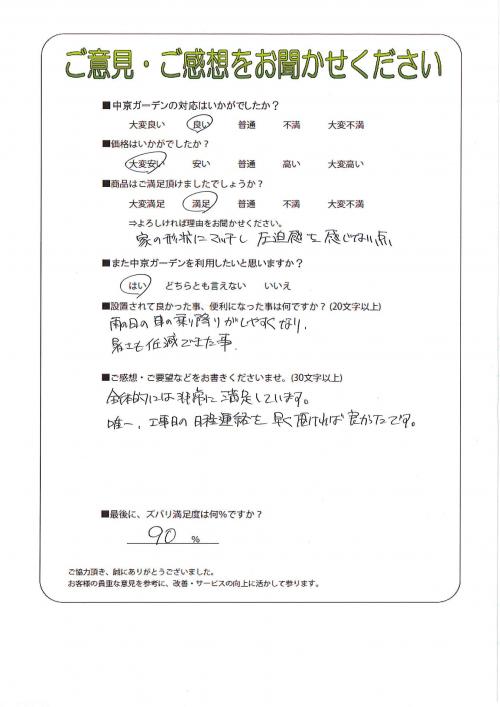 ご意見・ご感想をお聞かせください
■中京ガーデンの対応はいかがでしたか？
大変良い 良い 普通 不満 大変不満
■価格はいかがでしたか？
大変安い 安い 普通 高い 大変高い
■商品はご満足頂けましたでしょうか？
大変満足 満足 普通 不満 大変不満
⇒よろしければ理由をお聞かせください。
家の形状にマッチし 圧迫感を感じない点
■また中京ガーデンを利用したいと思いますか？
はい どちらとも言えない いいえ
■設置されて良かった事、便利になった事は何ですか？(20文字以上)
雨の日の車の乗り降りがしやすくなり、
暑さも低減できた事。
■ご感想・ご要望などをお書きくださいませ。(30文字以上)
全体的には非常に満足しています。
唯一、工事日の日程連絡を早く頂ければ良かったです。
■最後に、ズバリ満足度は何％ですか？
90 %
ご協力頂き、誠にありがとうございました。
お客様の貴重な意見を参考に、改善・サービスの向上に活かして参ります。